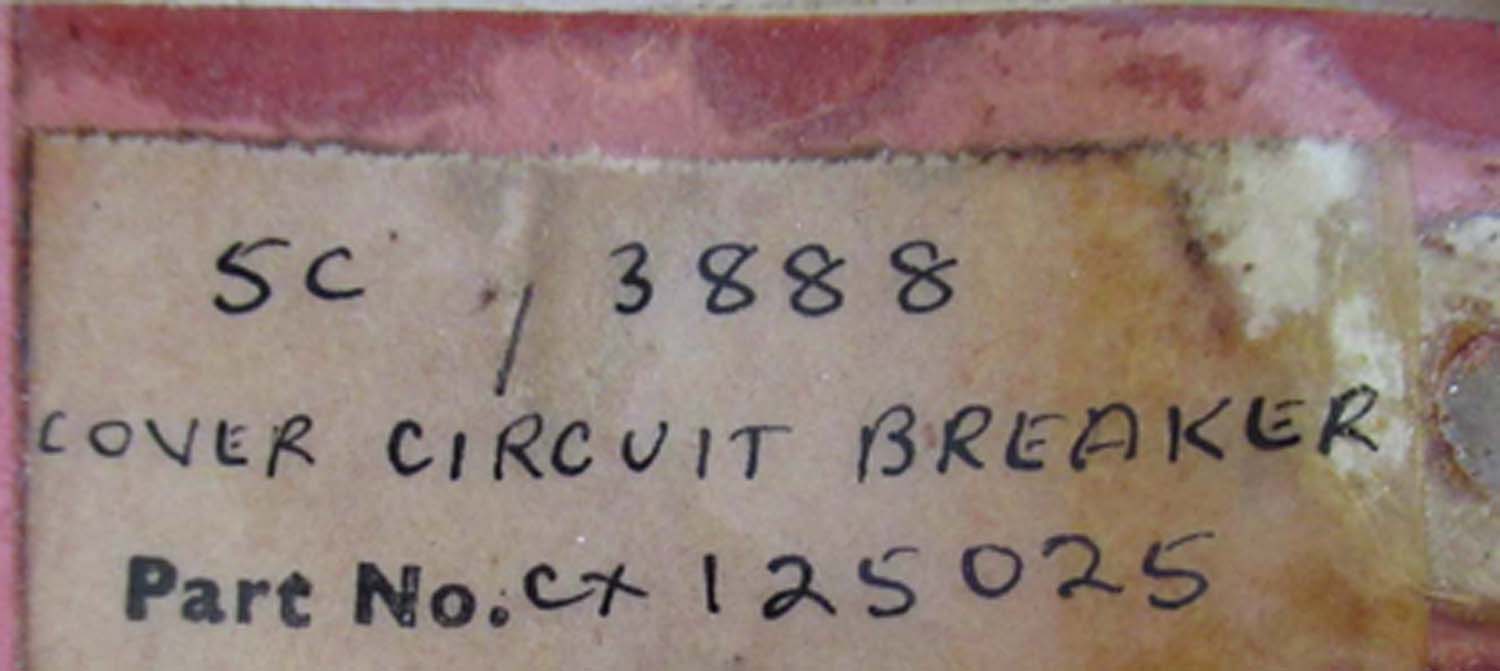 5C / 3888
COVER CIRCUIT BREAKER
Part No. CX 125025